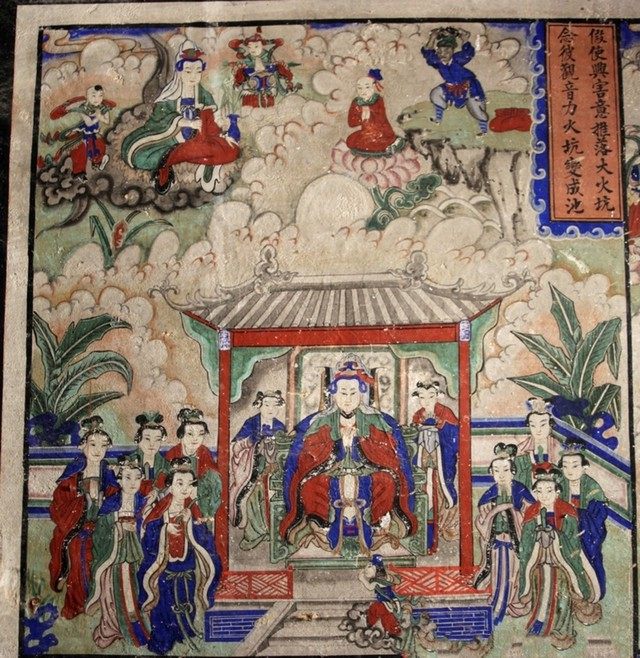 假使興害意推落大火坑
念彼觀音力火坑變成池